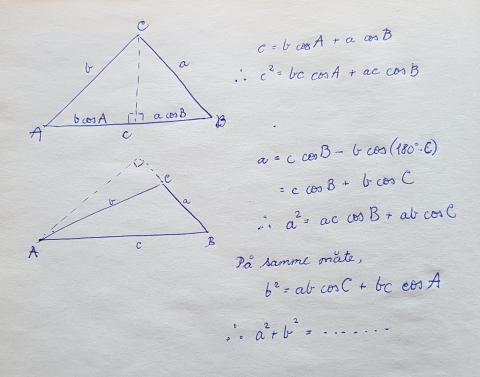 C
b
a
b cosA
a cosB
A
c
B
C
b
a
A
c
B
c = b cosA + a cosB
∴ c² = bc cosA + ac cosB
a = c cosB - b cos(180°-C)
= c cosB + b cosC
∴ a² = ac cosB + ab cosC
På samme måte,
b² = ab cosC + bc cosA
∴ a² + b² = .......